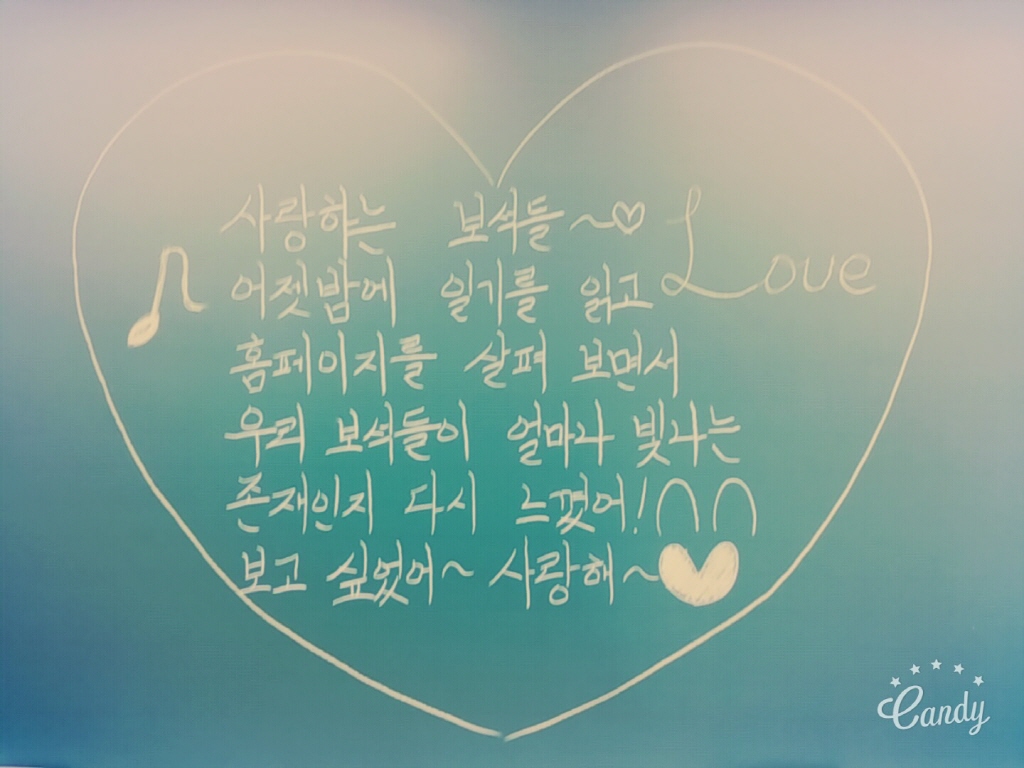 사랑하는 보석들~♡ Love
어젯밤에 일기를 읽고
홈페이지를 살펴 보면서
우리 보석들이 얼마라 빛라는
존재인지 다시 느꼈어!∩∩
보고 싶었어~ 사랑해~♥
Candy